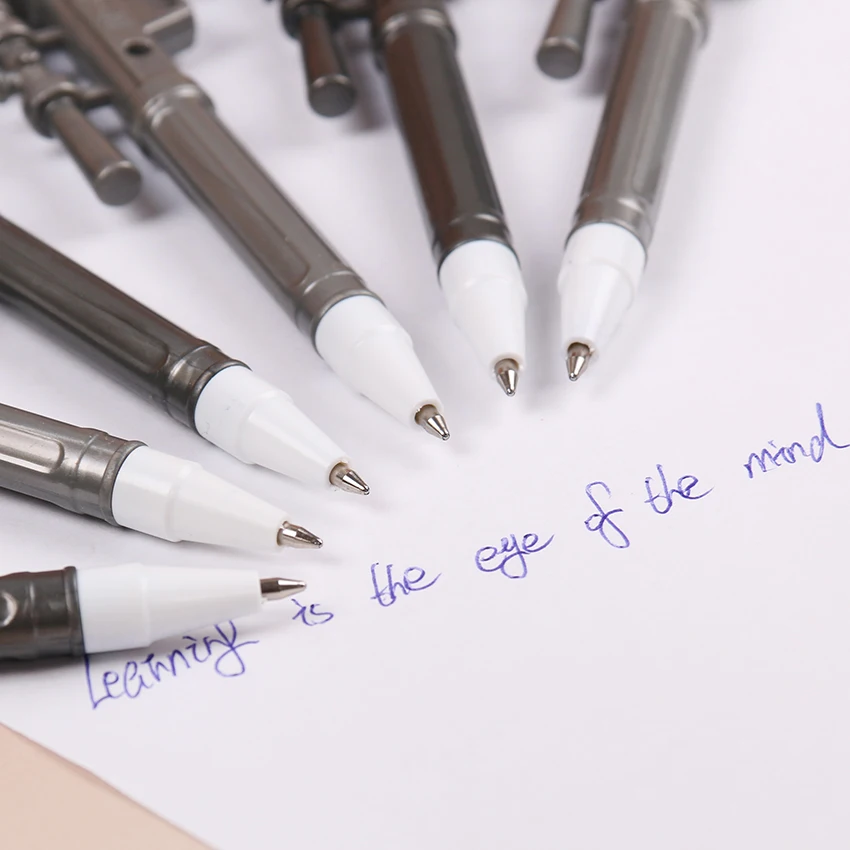 Learning is the eye of the mind